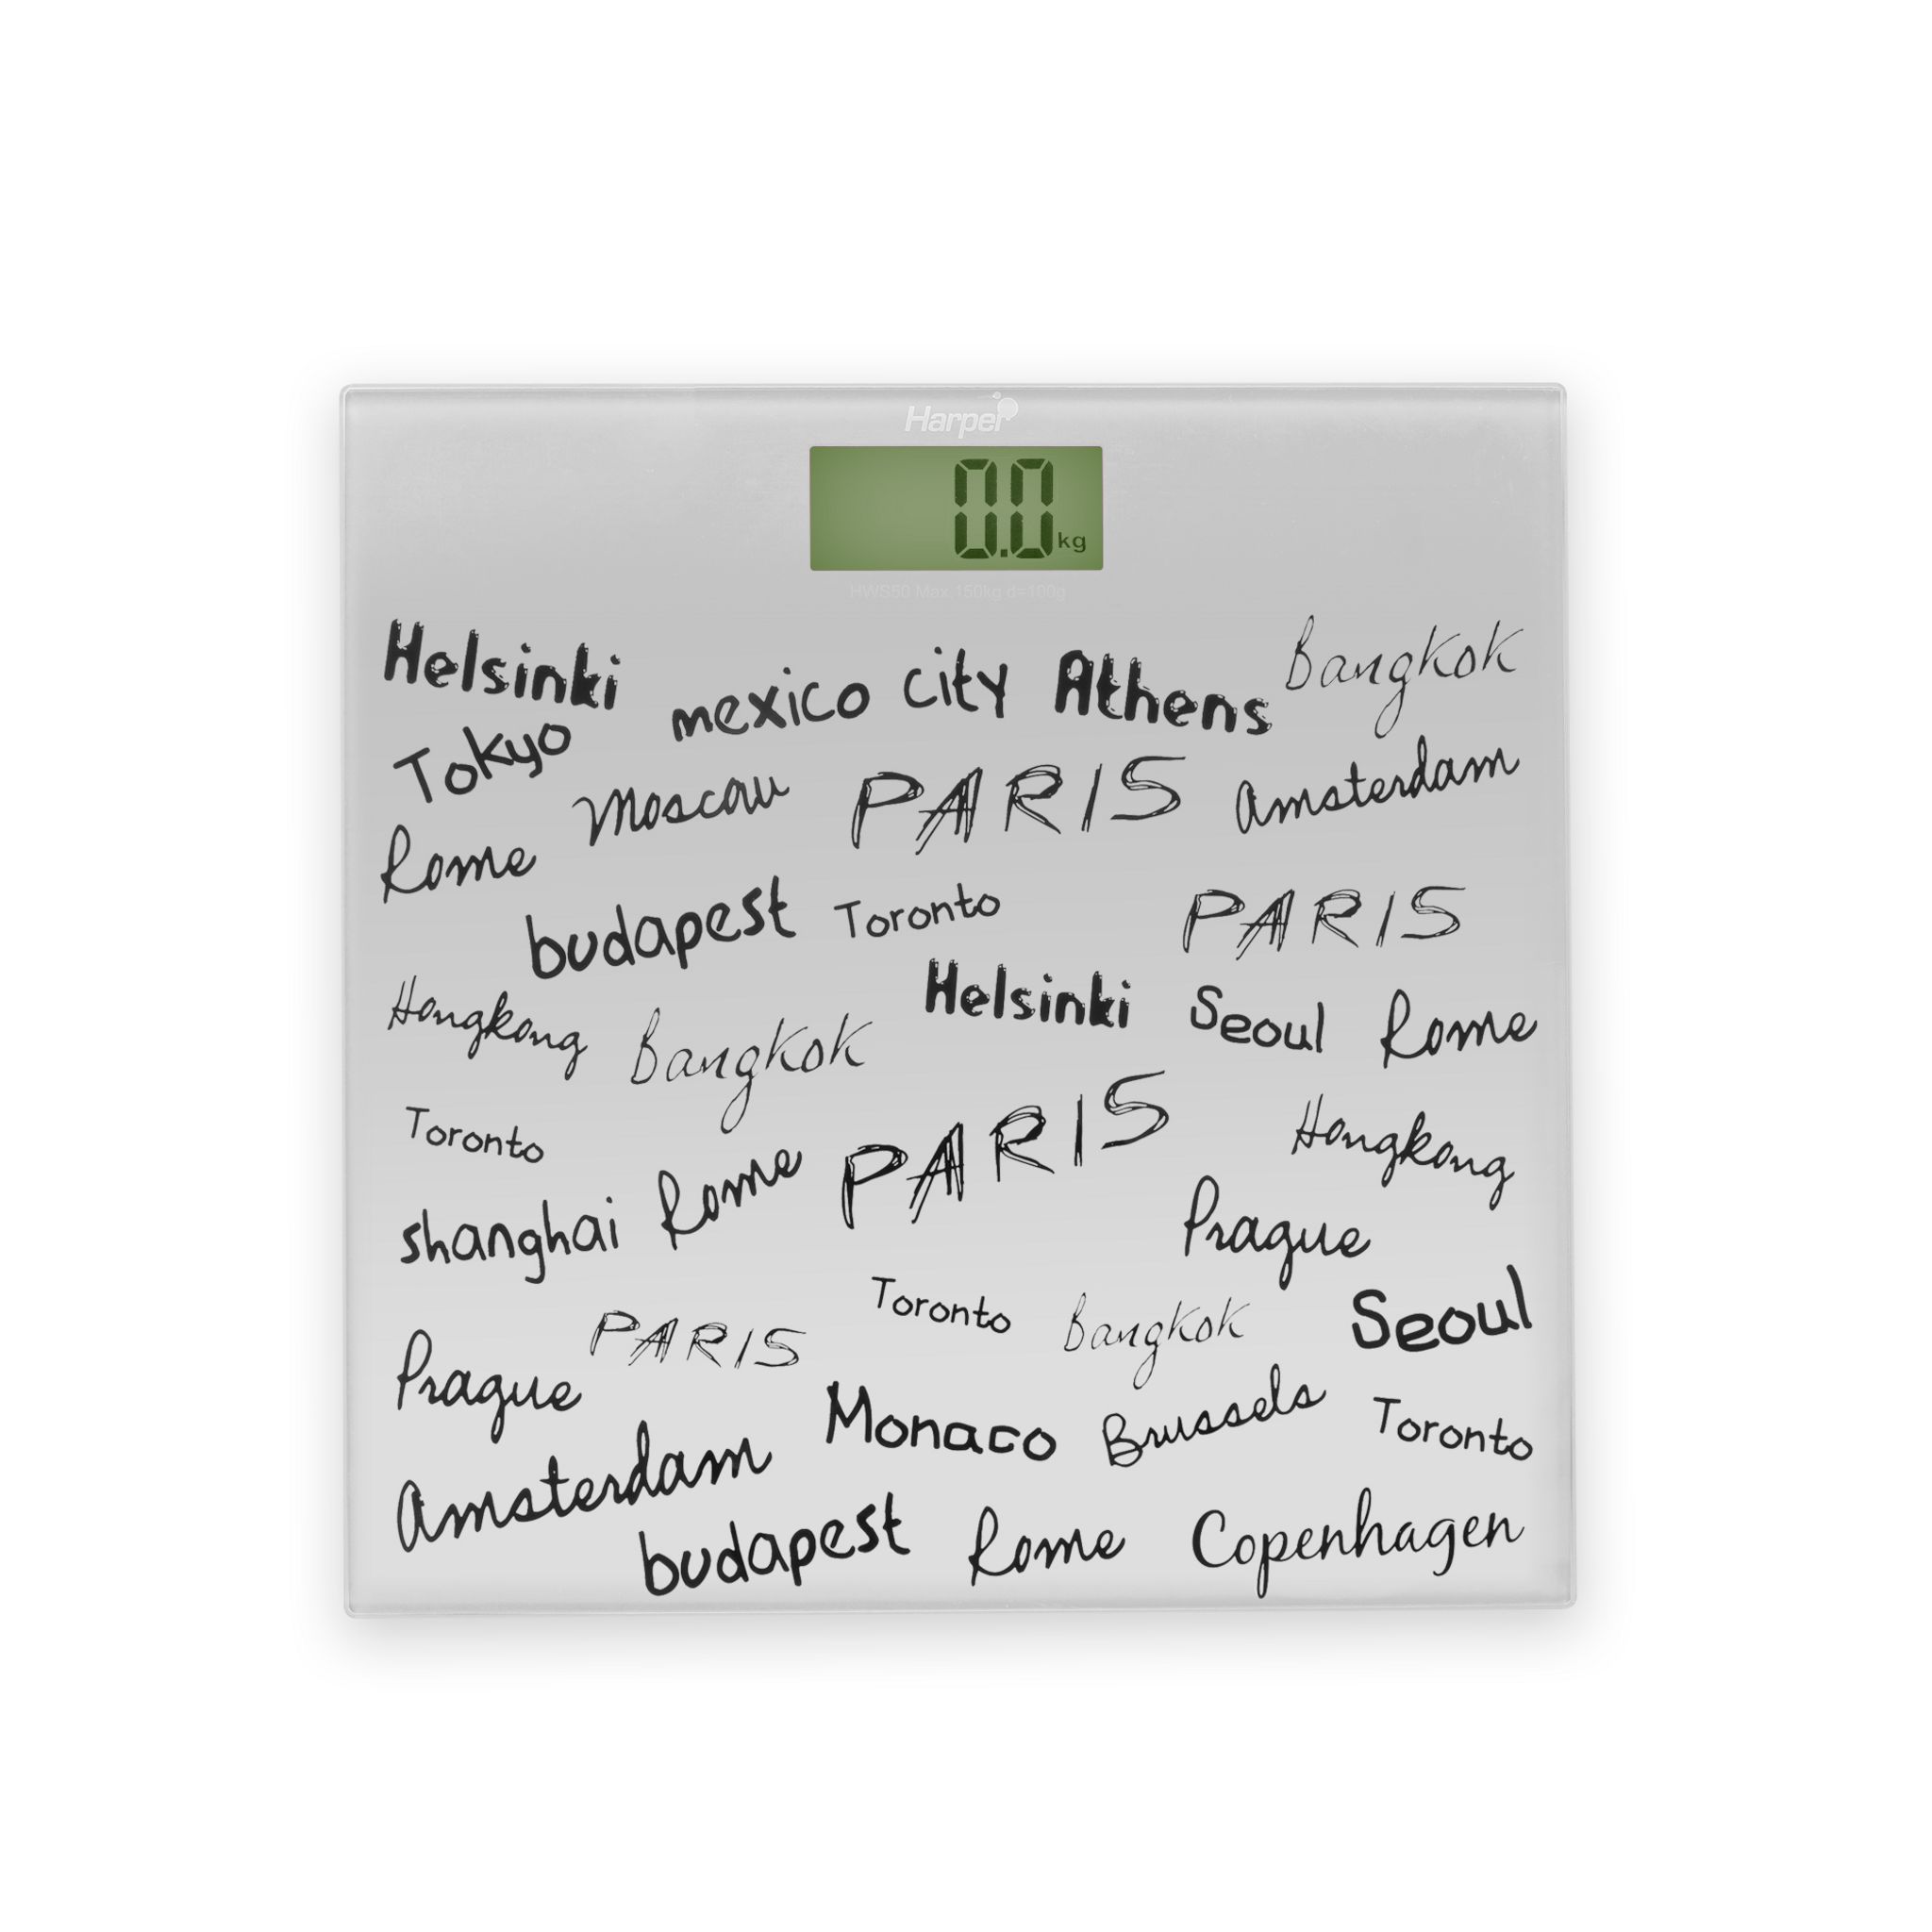 Harper
0.0 kg
HWS80 Max 150kg d=100g
Helsinki mexico city Athens Bangkok
Tokyo Moscow PARIS Amsterdam
Rome budapest Toronto PARIS
Hongkong Bangkok Helsinki Seoul Rome
Toronto Rome PARIS Hongkong
shanghai Prague
PARIS Toronto Bangkok Seoul
Prague Monaco Brussels Toronto
Amsterdam budapest Rome Copenhagen